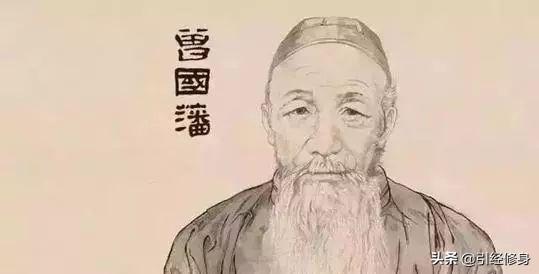 曾國藩
头条 @引经修身